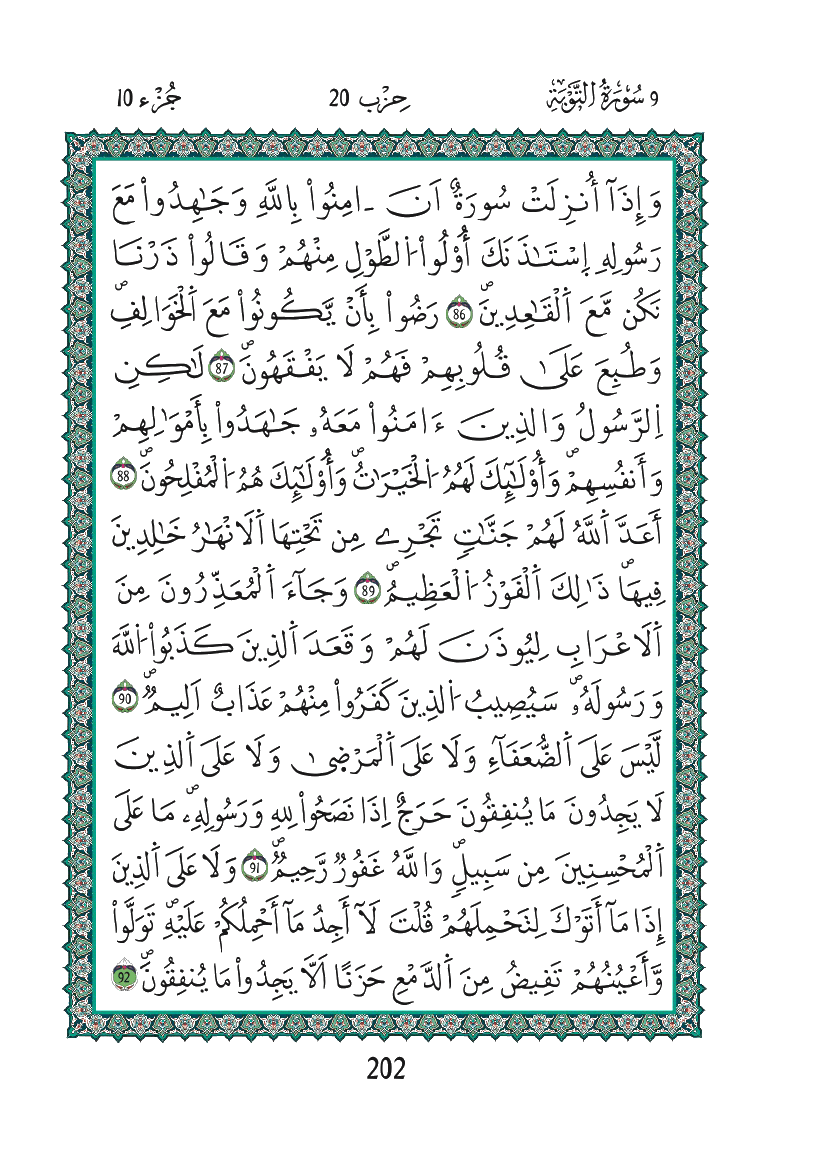 9 سُورَةُ التَّوْبَةِ حِزْب 20 جُزْء 10
وَإِذَآ أُنزِلَتْ سُورَةٌ اَنَ ـ امِنُواْ بِاللَّهِ وَجَٰهِدُواْ مَعَ
رَسُولِهِ اِ۪سْتَـٰذَنَكَ أُوْلُواْ اُ۬لطَّوْلِ مِنْهُمْ وَقَالُواْ ذَرْنَا
نَكُن مَّعَ اَ۬لْقَٰعِدِينَۖ 86 رَضُواْ بِأَنْ يَّكُونُواْ مَعَ اَ۬لْخَوَالِفِۖ
وَطُبِعَ عَلَىٰ قُلُوبِهِمْ فَهُمْ لَا يَفْقَهُونَۖ 87 لَٰكِنِ
اِ۬لرَّسُولُ وَالذِينَ ءَامَنُواْ مَعَهُۥ جَٰهَدُواْ بِأَمْوَٰلِهِمْ
وَأَنفُسِهِمْۖ وَأُوْلَٰٓئِكَ لَهُمُ اُ۬لْخَيْرَٰتُۖ وَأُوْلَٰٓئِكَ هُمُ اُ۬لْمُفْلِحُونَۖ 88
أَعَدَّ اَ۬للَّهُ لَهُمْ جَنَّٰتٖ تَجْرِے مِن تَحْتِهَا اَ۬لَانْهَٰرُ خَٰلِدِينَ
فِيهَاۖ ذَٰلِكَ اَ۬لْفَوْزُ اُ۬لْعَظِيمُۖ 89 وَجَآءَ اَ۬لْمُعَذِّرُونَ مِنَ
اَ۬لَاعْرَابِ لِيُوذَنَ لَهُمْ وَقَعَدَ اَ۬لذِينَ كَذَبُواْ اُ۬للَّهَ
وَرَسُولَهُۥۖ سَيُصِيبُ اُ۬لذِينَ كَفَرُواْ مِنْهُمْ عَذَابٌ اَلِيمٞۖ 90
لَّيْسَ عَلَى اَ۬لضُّعَفَآءِ وَلَا عَلَى اَ۬لْمَرْضَىٰ وَلَا عَلَى اَ۬لذِينَ
لَا يَجِدُونَ مَا يُنفِقُونَ حَرَجٌ اِذَا نَصَحُواْ لِلهِ وَرَسُولِهِۦۖ مَا عَلَى
اَ۬لْمُحْسِنِينَ مِن سَبِيلٖۖ وَاللَّهُ غَفُورٞ رَّحِيمٞۖ 91 وَلَا عَلَى اَ۬لذِينَ
إِذَا مَآ أَتَوْكَ لِتَحْمِلَهُمْ قُلْتَ لَآ أَجِدُ مَآ أَحْمِلُكُمْ عَلَيْهِۖ تَوَلَّواْ
وَّأَعْيُنُهُمْ تَفِيضُ مِنَ اَ۬لدَّمْعِ حَزَنًا اَلَّا يَجِدُواْ مَا يُنفِقُونَۖ 92
202